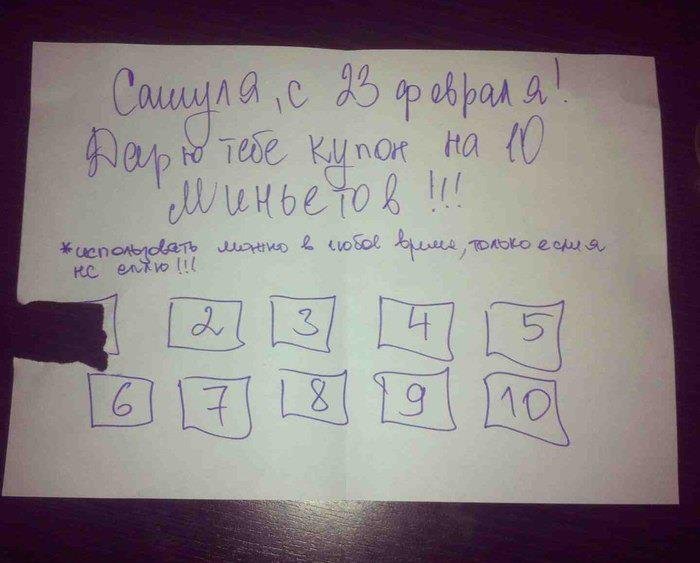 Сашуля, с 23 февраля!
Дарю тебе купон на 10
миньетов!!!
*использовать можно в любое время, только если я
не сплю!!!
2 3 4 5
6 7 8 9 10